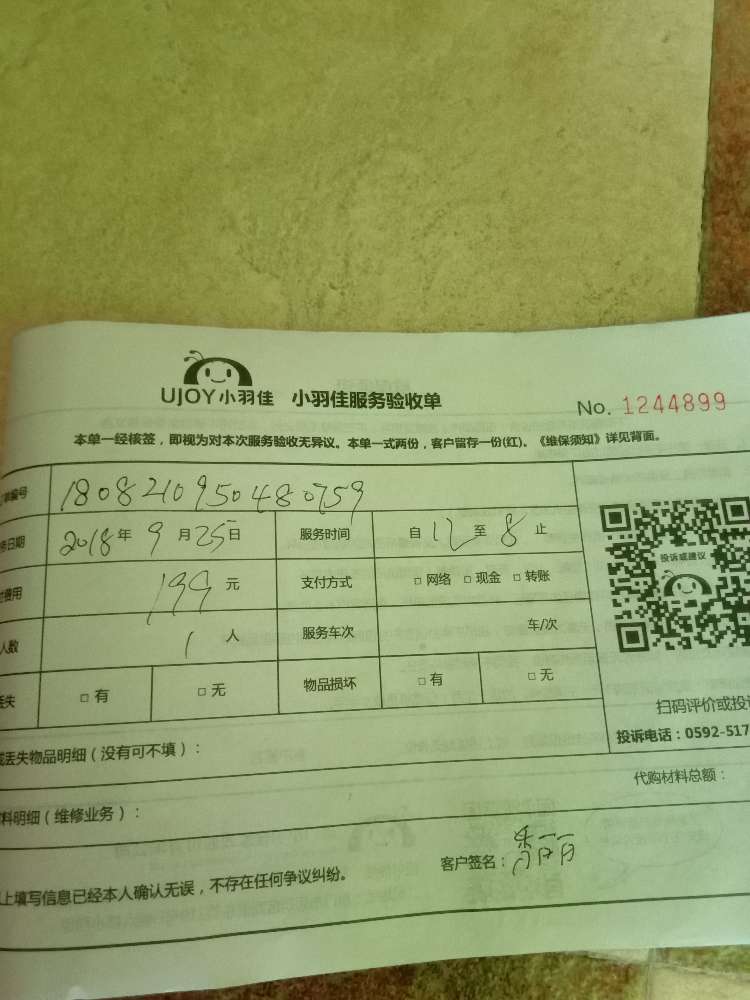 UJOY小羽佳 小羽佳服务验收单
No. 1244899
本单一经核签，即视为对本次服务验收无异议。本单一式两份，客户留存一份(红)。《维保须知》详见背面。
单编号 1808210950480759
务日期 2018年 9 月 25 日 服务时间 自 12 至 8 止
投诉或建议
费用 199 元 支付方式 □ 网络 □ 现金 □ 转账
人数 1 人 服务车次 车/次
丢失 □ 有 □ 无 物品损坏 □ 有 □ 无
扫码评价或投诉
投诉电话：0592-517
或丢失物品明细（没有可不填）：
代购材料总额：
料明细（维修业务）：
客户签名：
上填写信息已经本人确认无误，不存在任何争议纠纷。